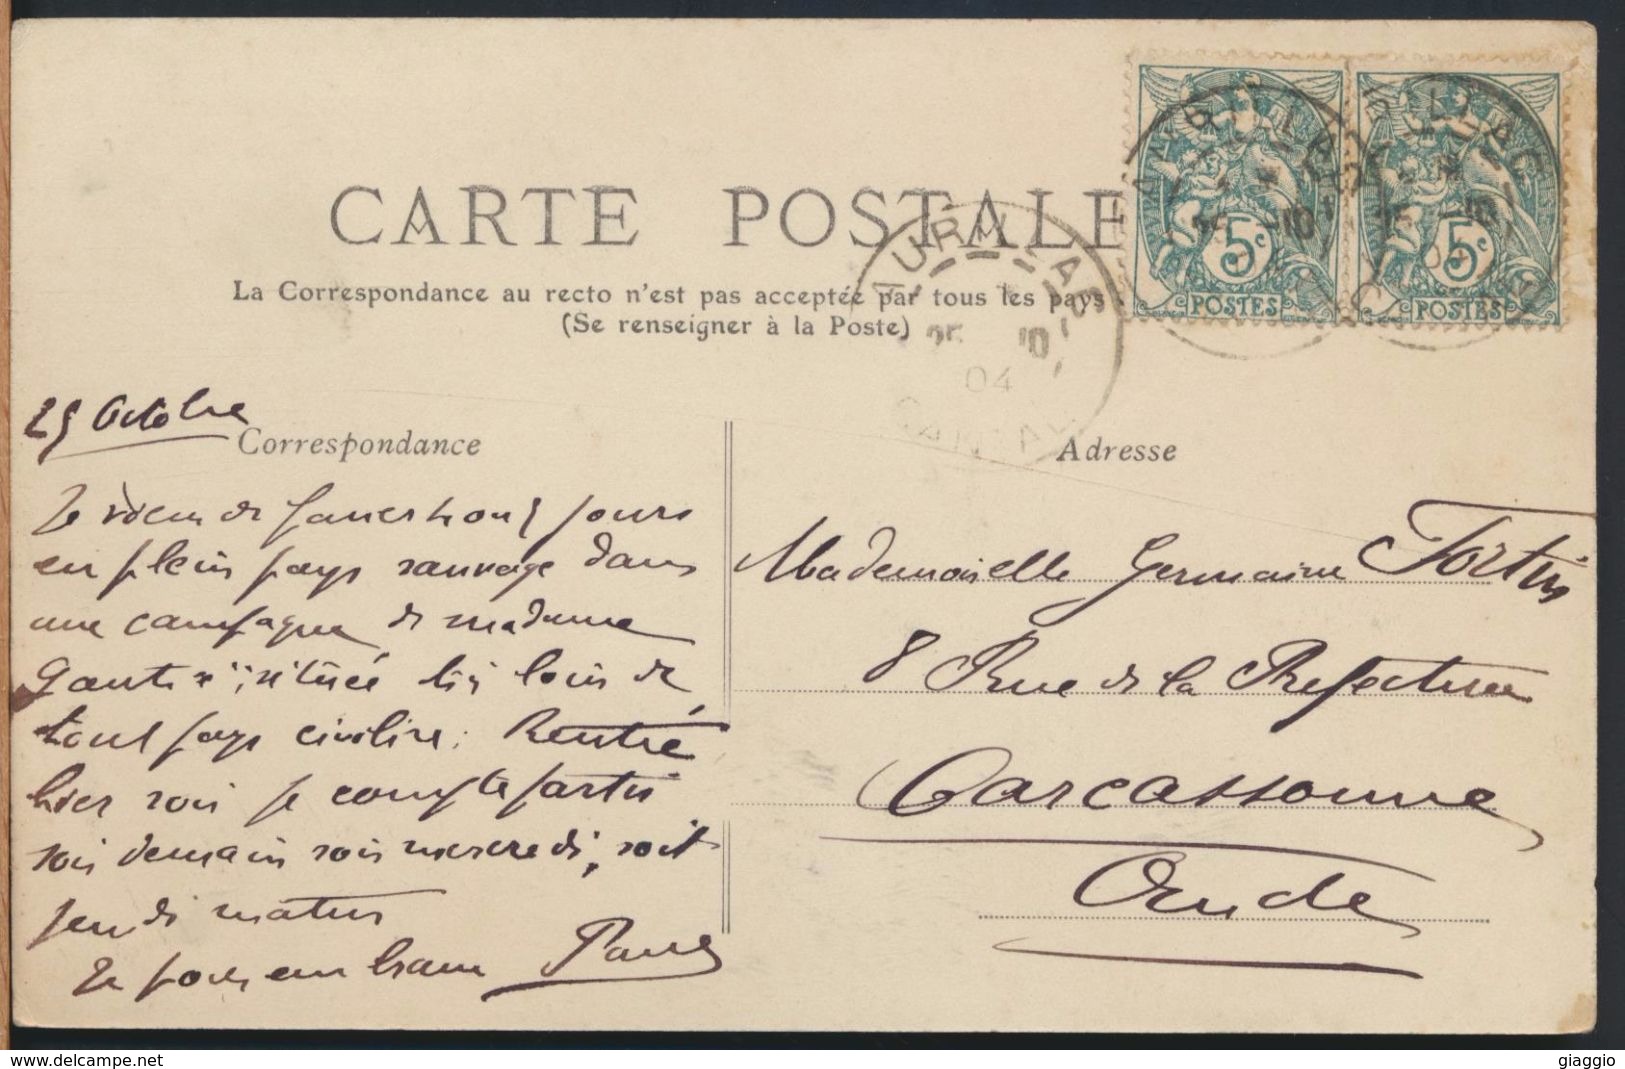 CARTE POSTALE
La Correspondance au recto n'est pas acceptée par tous les pays
(Se renseigner à la Poste)
5c
POSTES
5c
POSTES
AURILLAC
25 10
04
CANTAL
25 Octobre
Correspondance
Je viens de passer trois jours
en plein pays sauvage dans
une campagne de madame
située très loin de
tout pays civilisé; Rentré
hier soir je compte partir
soit demain soir mercredi, soit
jeudi matin
Je vous embrasse Paul
Adresse
Mademoiselle Germaine Fortin
8 Rue de la Préfecture
Carcassonne
Aude
www.delcampe.net
giaggio